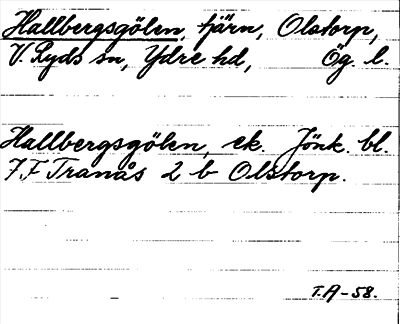 Hallbergsgölen, tjärn, Olstorp,
V. Ryds sn, Ydre hd, Ög. l.
Hallbergsgölen, ek. Jönk. bl.
7F Tranås 2 b Olstorp.
T.A-58.